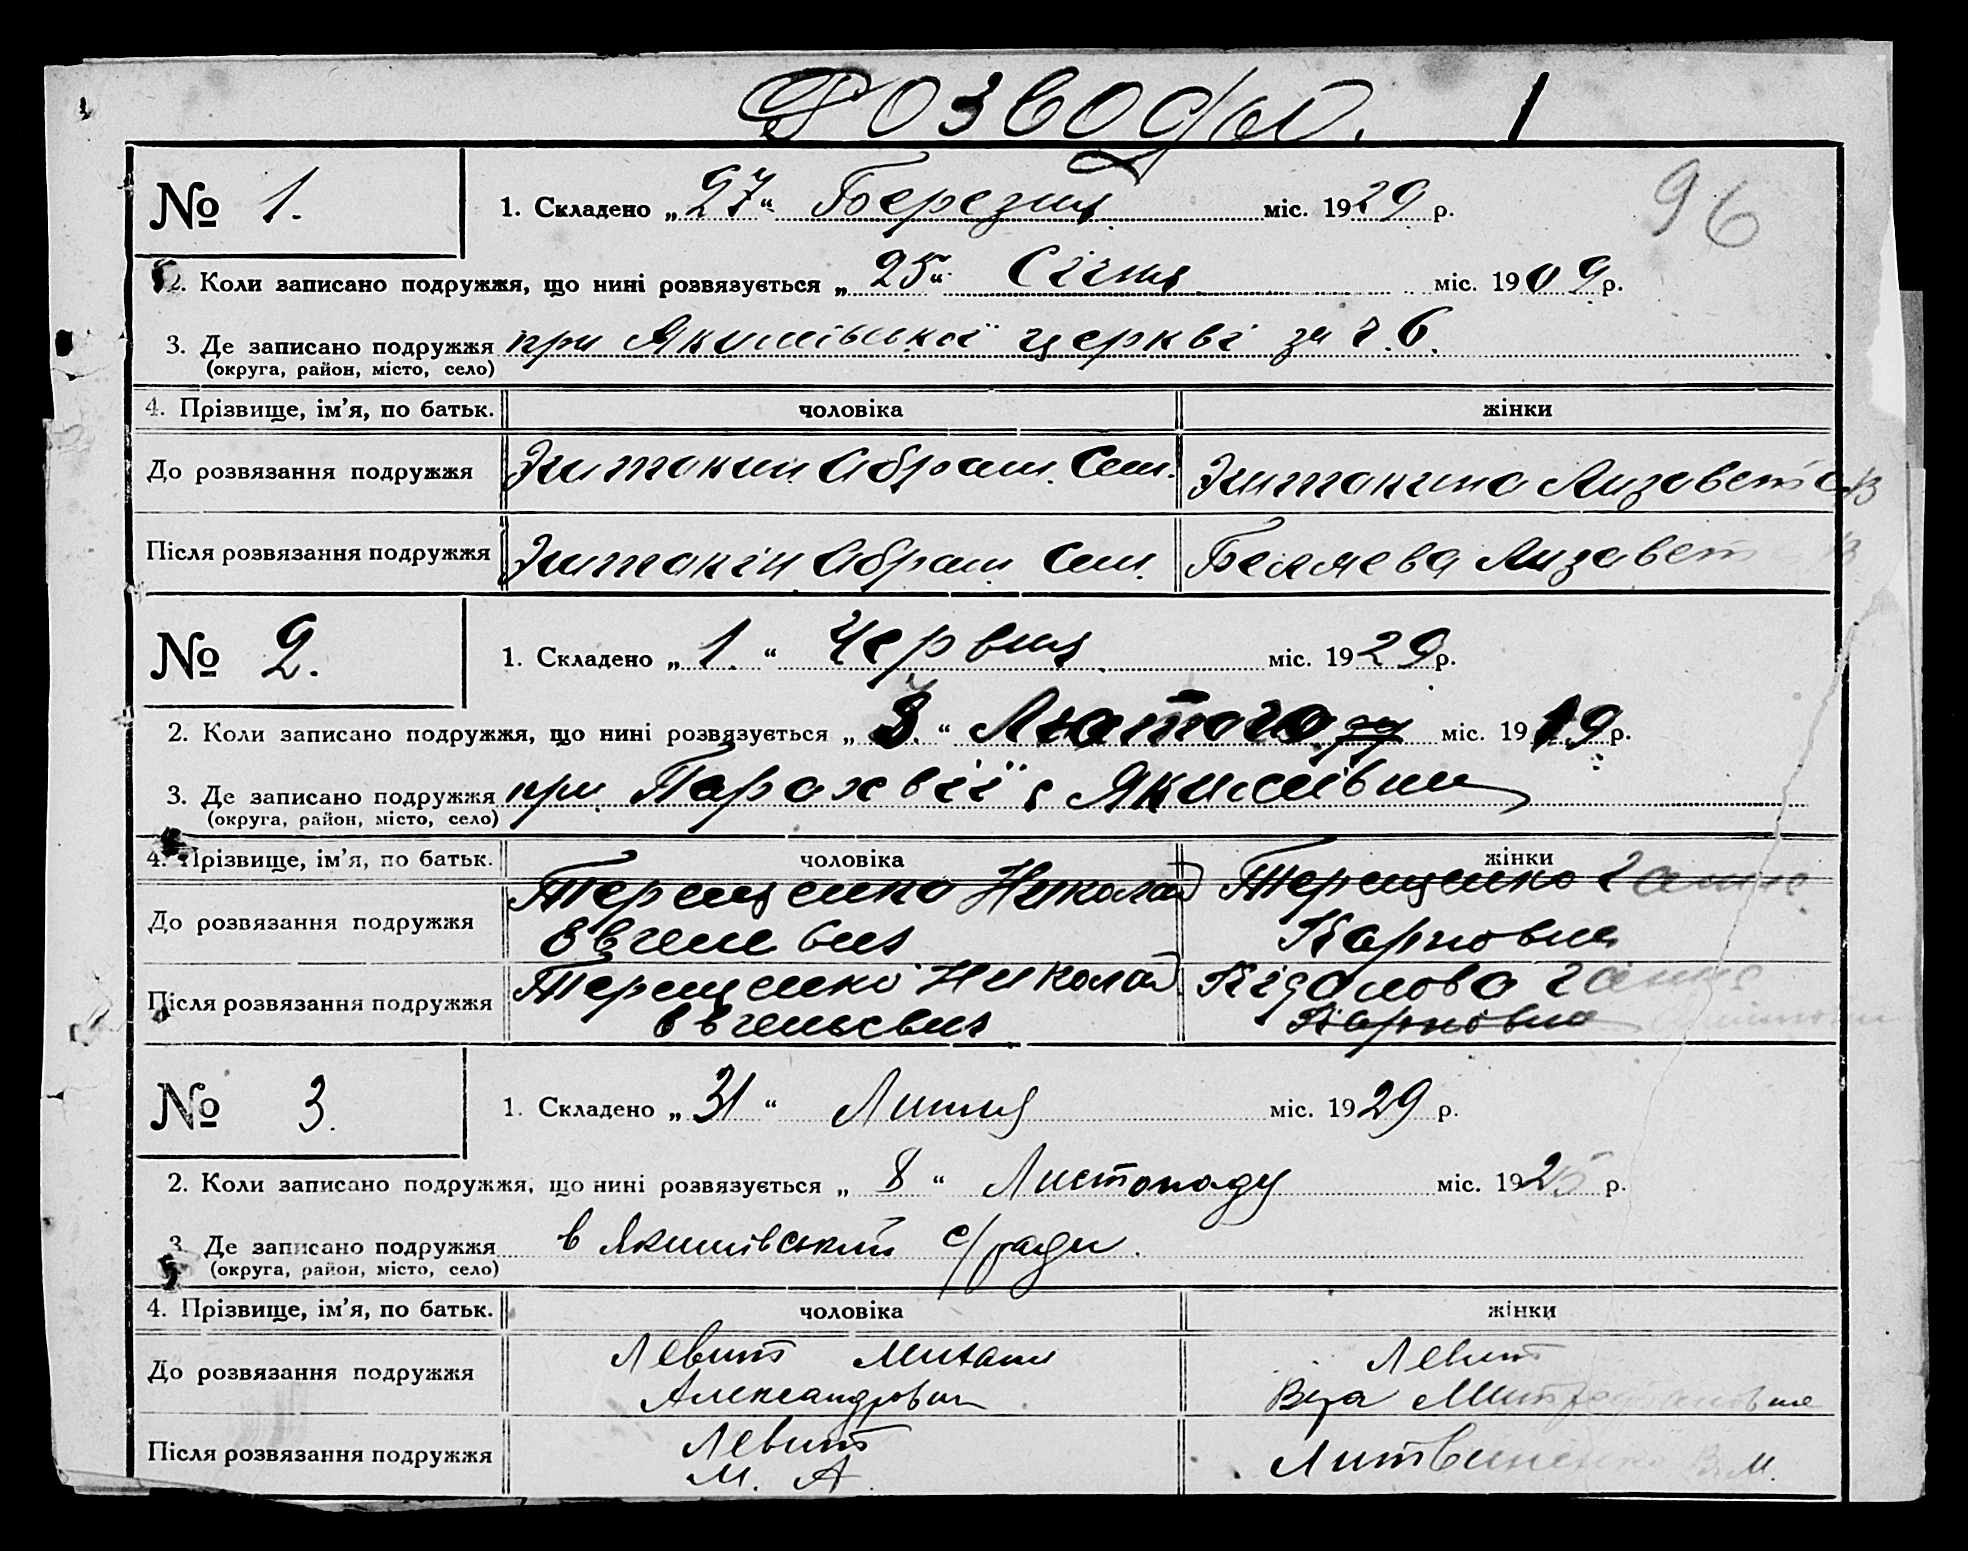 Розводи. 1
96
№ 1. 1. Складено „27“ Березня міс. 1929 р.
2. Коли записано подружжя, що нині розвязується „25“ Січня міс. 1909 р.
3. Де записано подружжя при Якимівської церкві за ч. 6.
(округа, район, місто, село)
4. Прізвище, ім’я, по батьк. чоловіка жінки
До розвязання подружжя Абрам Сем. Лизавет
Після розвязання подружжя Абрам Сем. Беляева Лизавет
№ 2. 1. Складено „1.“ Червня міс. 1929 р.
2. Коли записано подружжя, що нині розвязується „3.“ Лютого міс. 1919 р.
3. Де записано подружжя при Парахвії с Якимівки
(округа, район, місто, село)
4. Прізвище, ім’я, по батьк. чоловіка жінки
Терещенко Николай Терещенко Ганна
До розвязання подружжя
Евгеневич Карповна
Терещенко Николай Ганна
Після розвязання подружжя
Евгеньевич Карповна
№ 3. 1. Складено „31“ Липня міс. 1929 р.
2. Коли записано подружжя, що нині розвязується „8“ Листопаду міс. 1925 р.
3. Де записано подружжя в Якимівський с/ради.
(округа, район, місто, село)
4. Прізвище, ім’я, по батьк. чоловіка жінки
Левит Михаил Левит
До розвязання подружжя
Александрович Вера
Левит
Після розвязання подружжя Литвиненко В. М.
М. А.